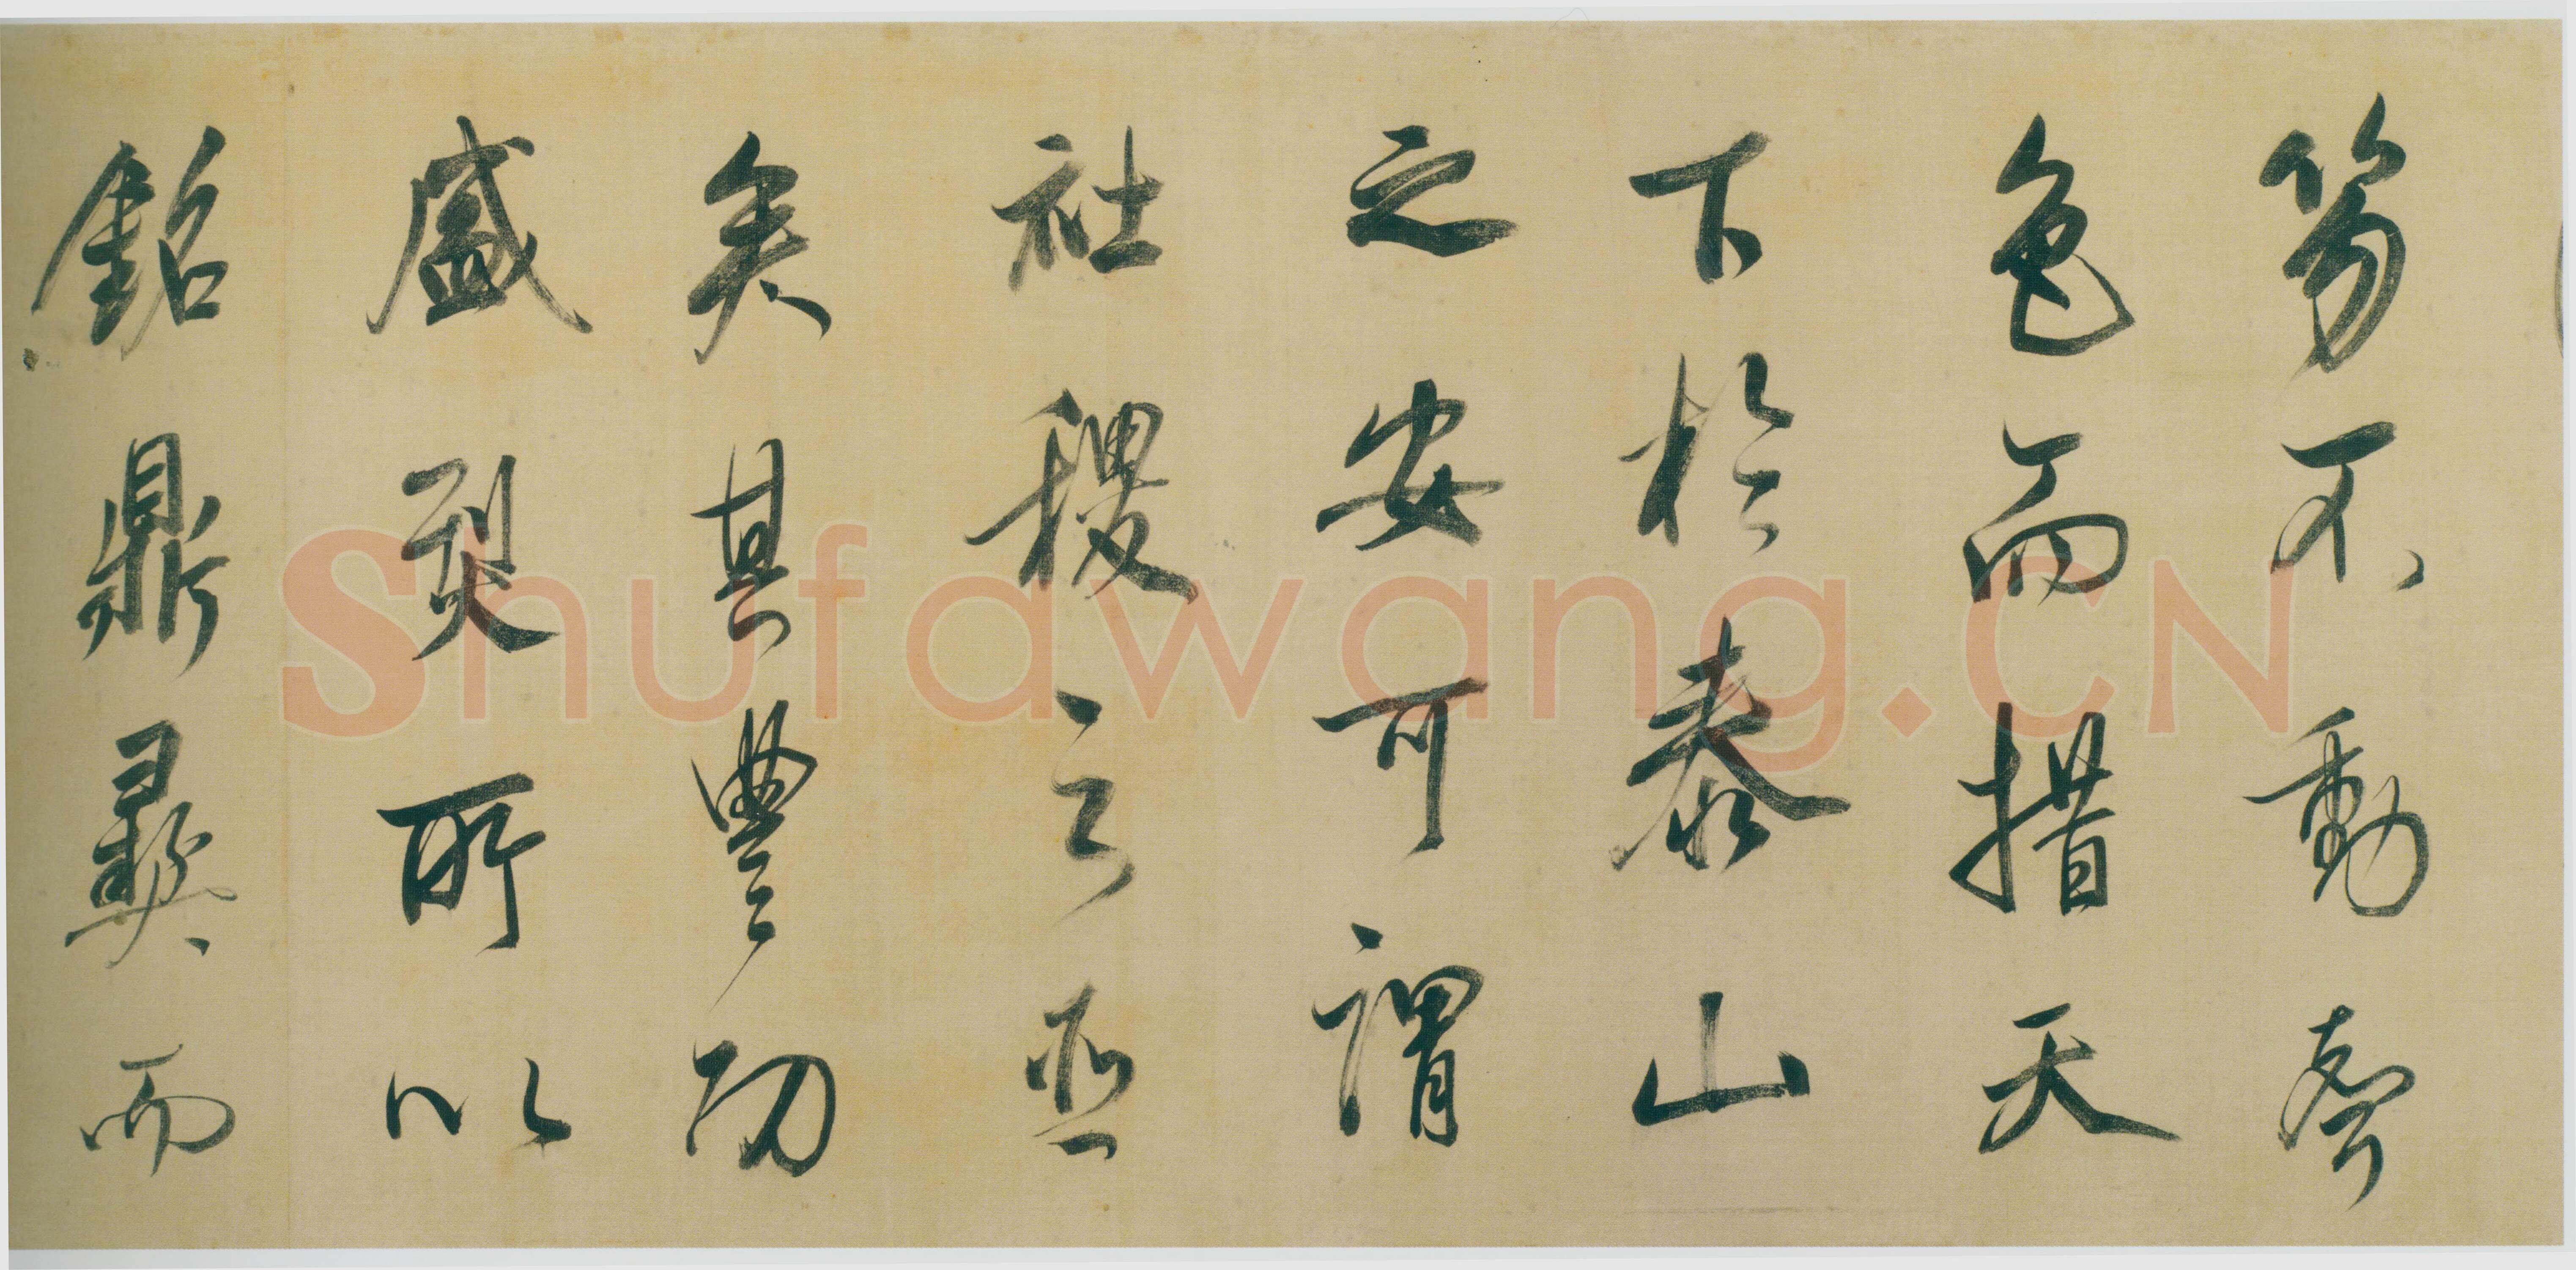 笏不動聲
色而措天
下於泰山
之安可謂
社稷之臣
矣其豐功
盛烈所以
銘鼎彝而
Shufawang.CN